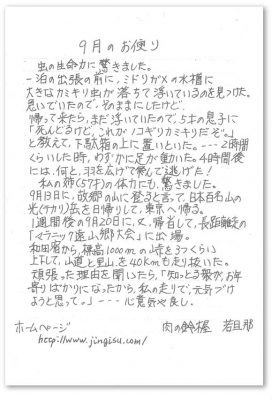 9月のお便り
虫の生命力に驚きました。
一泊の出張の前に、ミドリガメの水槽に
大きなカミキリ虫が落ちて浮いているのを見つけた。
急いでいたので、そのままにしたけど、
帰って来たら、まだ浮いていたので、5才の息子に
「死んどるけど、これがノコギリカミキリだぞ。」
と教えて、下駄箱の上に置いといた。---2時間
くらいした時、わずかに足が動いた。4時間後
には、何と、羽を広げて飛んで逃げた!
私の姉(57才)の体力にも、驚きました。
9月13日に、故郷の山に登ると言って、日本百名山の
光(テカリ)岳を日帰りして、東京へ帰る。
1週間後の9月20日に、又、帰省して、長距離走の
「イラニック遠山郷大会」に出場。
和田宿から、標高1000mの峠を3つくらい
上下して、山道と里山を40kmも走り抜いた。
頑張った理由を聞いたら、「知っとる衆が、お年
寄りばかりになったから、私の走りで、元気づけ
ようと思って。」---心意気や良し。
ホームページ 肉の鈴屋 若旦那
http://www.jingisu.com/